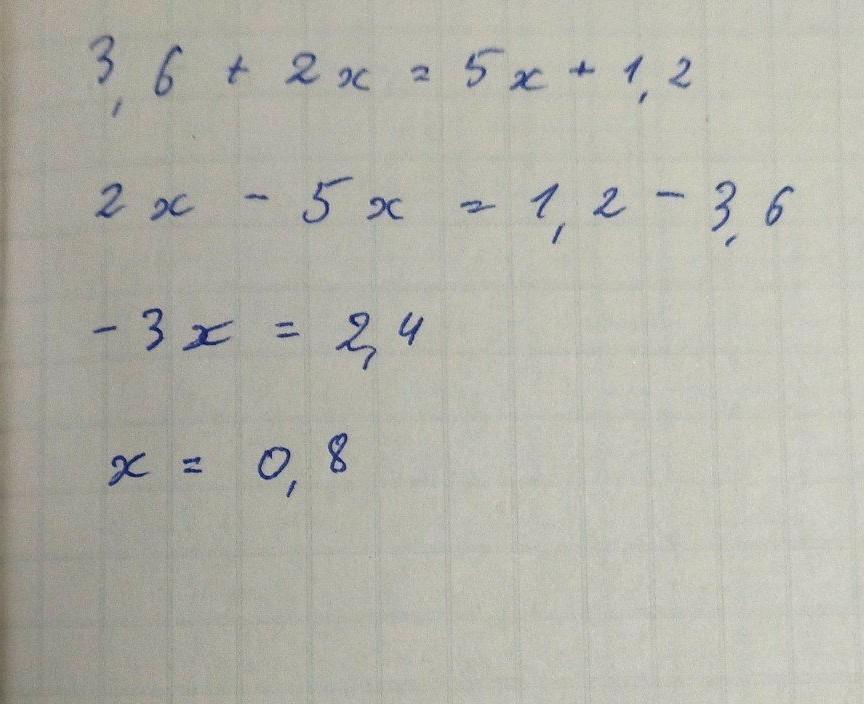 3,6 + 2x = 5x + 1,2
2x - 5x = 1,2 - 3,6
-3x = 2,4
x = 0,8